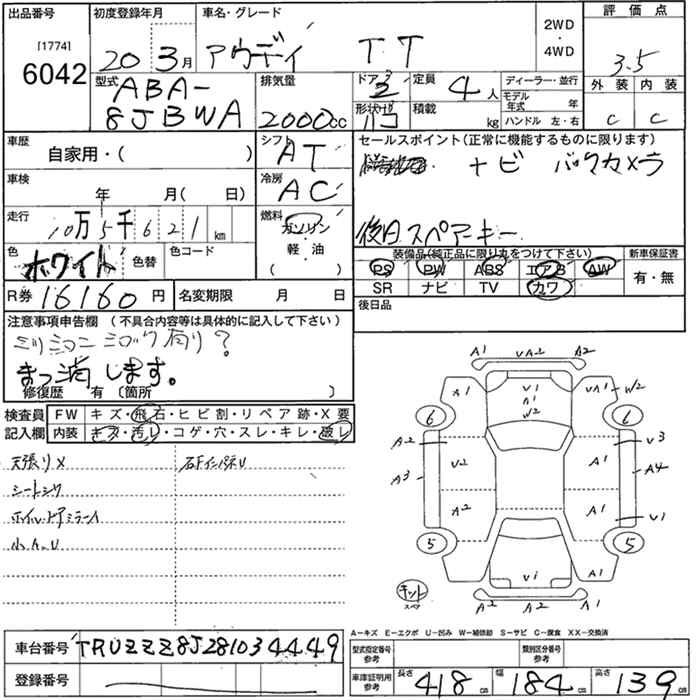 出品番号 初度登録年月 車名・グレード 2WD・4WD 評価点
[1774]
6042 20 3月 アウディ TT 3.5
型式 ABA-8JBWA
排気量 2000cc
ドア 形状 定員 4人
積載 kg
ディーラー・並行
モデル年式 年
ハンドル 左・右
外装 内装
C C
車歴 自家用・( )
シフト AT
セールスポイント(正常に機能するものに限ります)
ナビ バックカメラ
車検 年 月( 日)
冷房 AC
走行 10万5千621km
燃料 ガソリン 軽・油 ( )
後日スペアーキー
色 ホワイト 色替 色コード
装備品(純正品に限り丸をつけて下さい) 新車保証書
PS PW ABS エアB AW 有・無
SR ナビ TV カワ
R券 16160円 名変期限 月 日
後日品
注意事項申告欄 (不具合内容等は具体的に記入して下さい)
まっ消します。
修復歴 有 (箇所 )
検査員 FW キズ・飛石・ヒビ割・リペア跡・X要
記入欄 内装 キズ・汚レ・コゲ・穴・スレ・キレ・破レ
天張りX
シートシワ
小A.U
A1 VA2 A2
A1 V1 A1 W2 VA1 W2
6 6
A2 V2 A1 V3
A3 A4
A2 A1 V1
5 5
V1 A1
A2 A2
A-キズ E-エクボ U-凹み W-補修跡 S-サビ C-腐食 XX-交換済
車台番号 TRUZZZ8J281034449
型式指定番号 参考 類別区分番号 参考
登録番号
車庫証明用 参考 長さ 418cm 幅 184cm 高さ 139cm